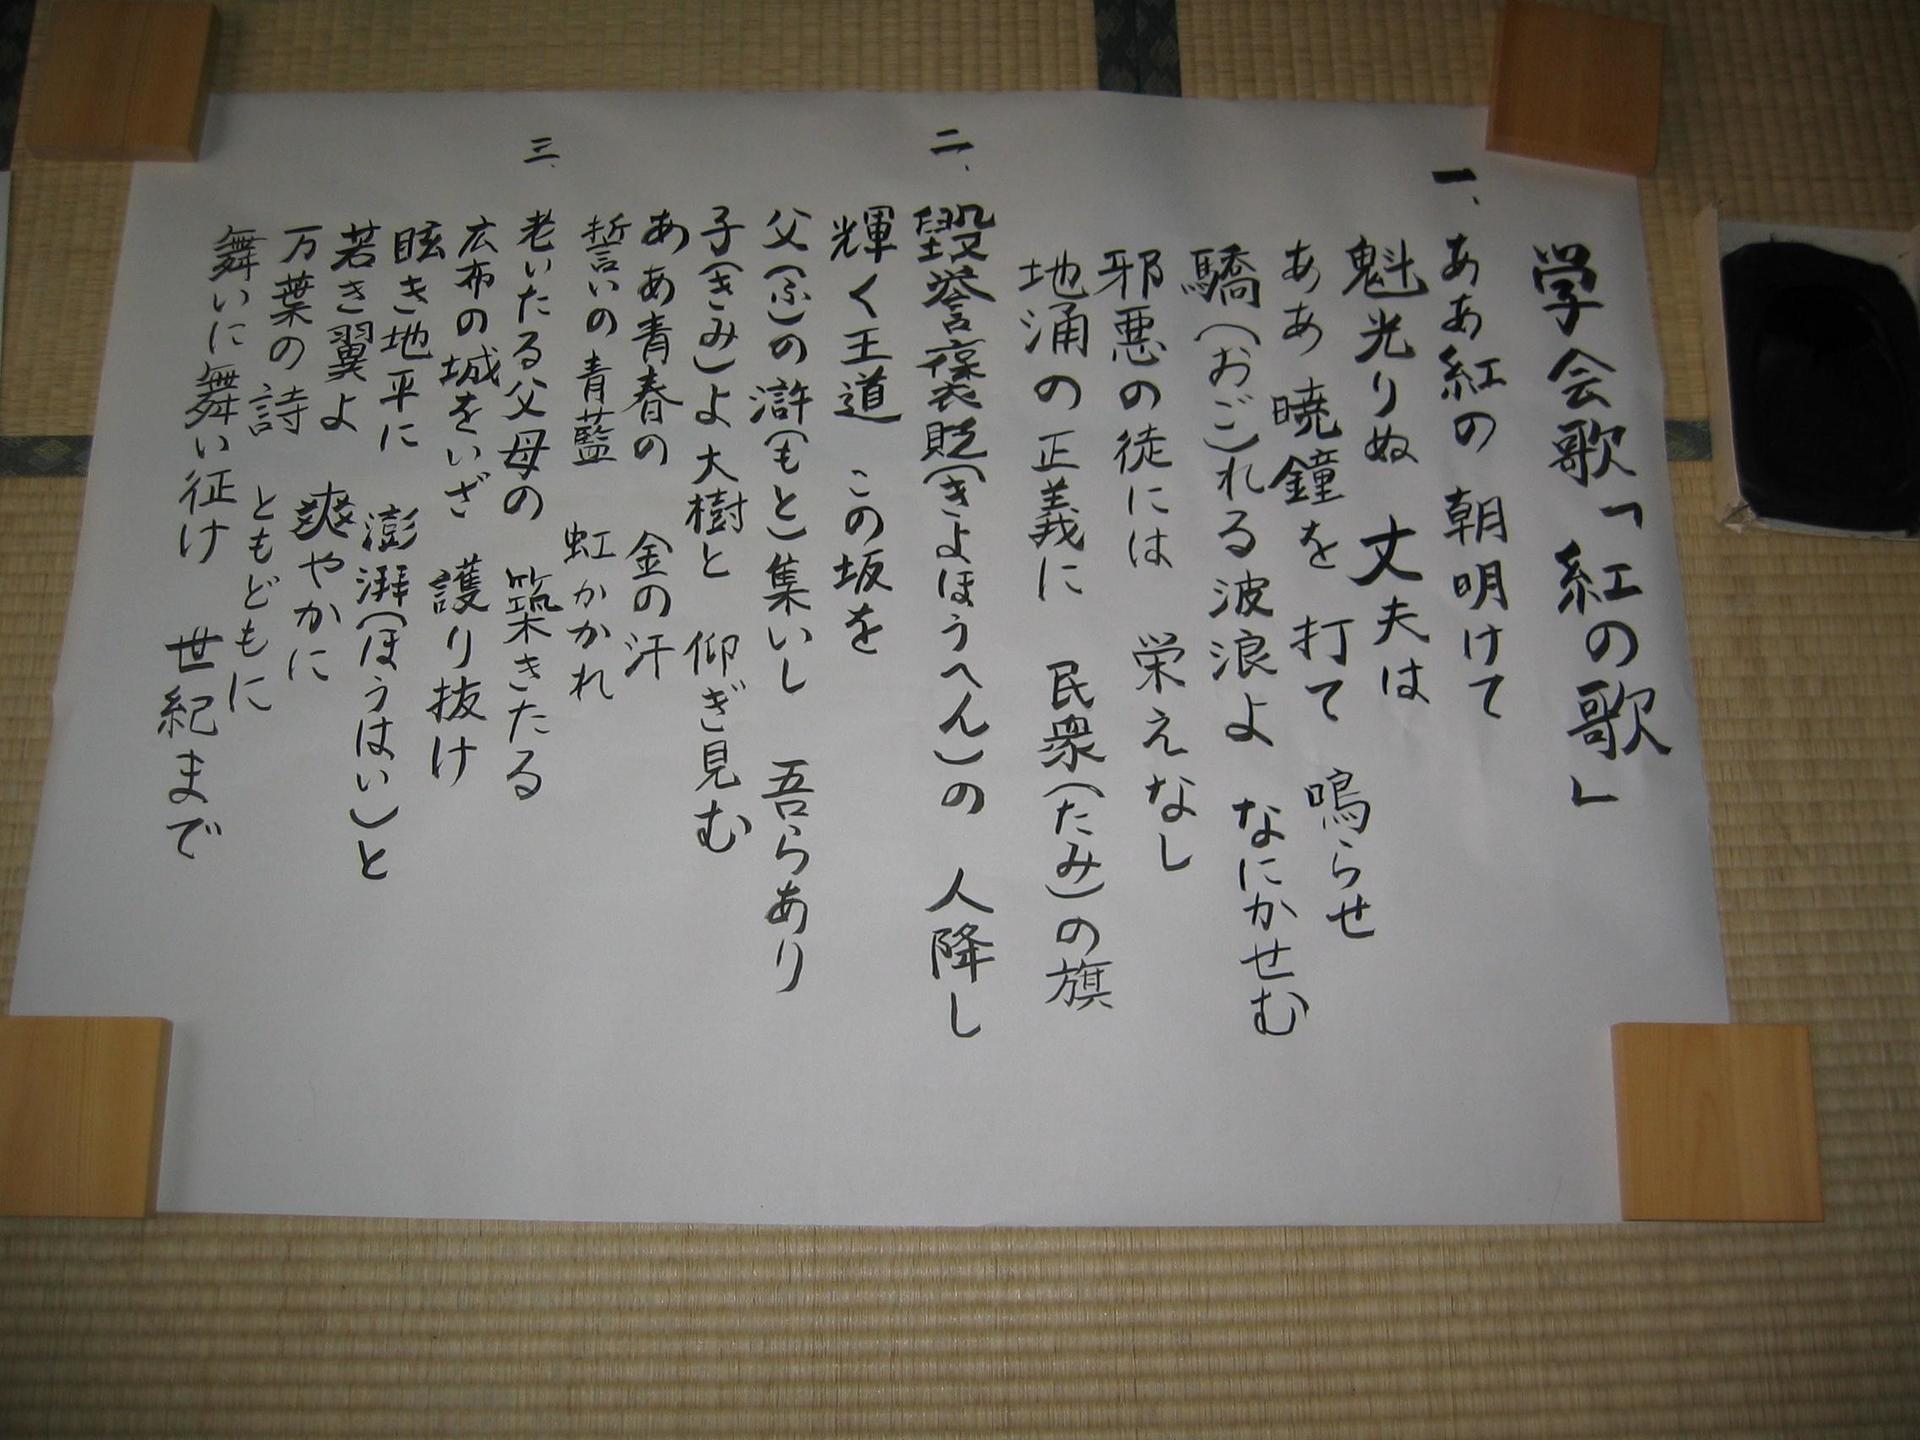 学会歌「紅の歌」
一、ああ紅の 朝明けて
魁光りぬ 丈夫は
ああ暁鐘を 打て 鳴らせ
驕(おご)れる波浪よ なにかせむ
邪悪の徒には 栄えなし
地涌の正義に 民衆(たみ)の旗
二、毀誉褒貶(きよほうへん)の 人降し
輝く王道 この坂を
父(ふ)の滸(もと)集いし 吾らあり
子(きみ)よ大樹と 仰ぎ見む
ああ青春の 金の汗
誓いの青藍 虹かかれ
三、老いたる父母の 築きたる
広布の城をいざ 護り抜け
眩き地平に 澎湃(ほうはい)と
若き翼よ 爽やかに
万葉の詩 ともどもに
舞いに舞い征け 世紀まで